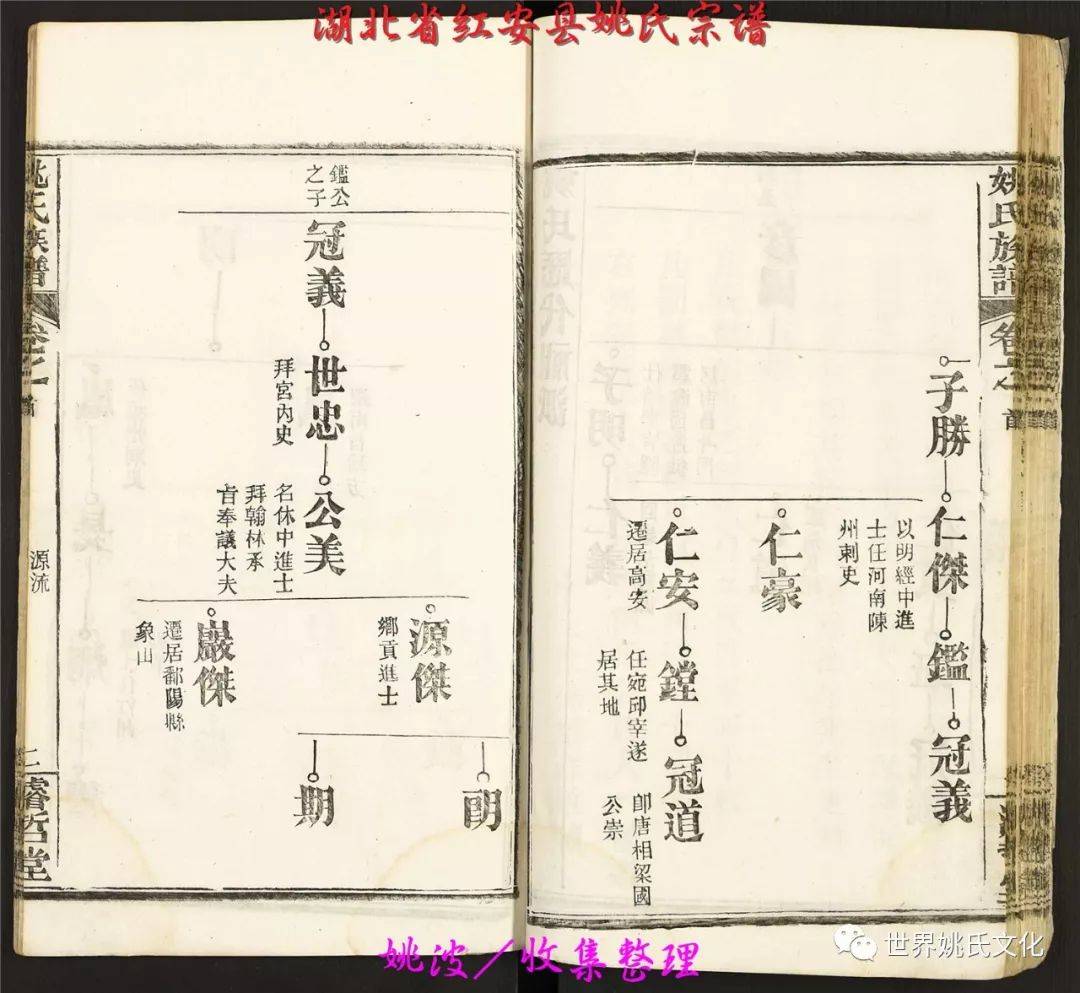 湖北省红安县姚氏宗谱
姚氏族譜
卷之一
首
子勝
仁傑
以明經中進
士任河南陳
州刺史
鑑
冠義
仁豪
仁安
遷居高安
鏜
任宛邱宰遂
居其地
冠道
卽唐相梁國
公崇
鑑公
之子
冠義
世忠
拜宮內史
公美
名休中進士
拜翰林承
旨奉議大夫
源傑
鄉貢進士
朙
期
巖傑
遷居鄱陽縣
象山
姚氏族譜
卷之一
首
源流
二
睿哲堂
姚波／收集整理
世界姚氏文化